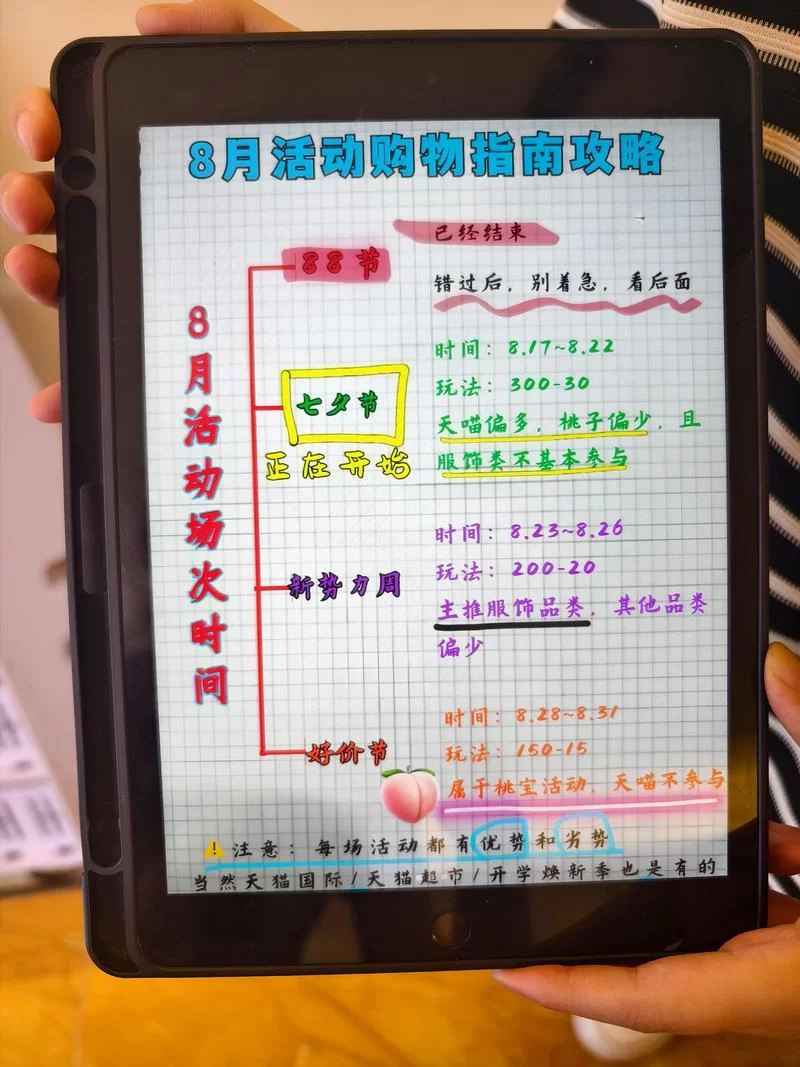 8月活动购物指南攻略
8月活动场次时间
88节
已经结束
错过后，别着急，看后面
七夕节
正在开始
时间：8.17~8.22
玩法：300-30
天喵偏多，桃子偏少，且
服饰类不基本参与
新势力周
时间：8.23~8.26
玩法：200-20
主推服饰品类，其他品类
偏少
好价节
时间：8.28~8.31
玩法：150-15
属于桃宝活动，天喵不参与
注意：每场活动都有优势和劣势
当然天猫国际/天猫超市/开学焕新季也是有的